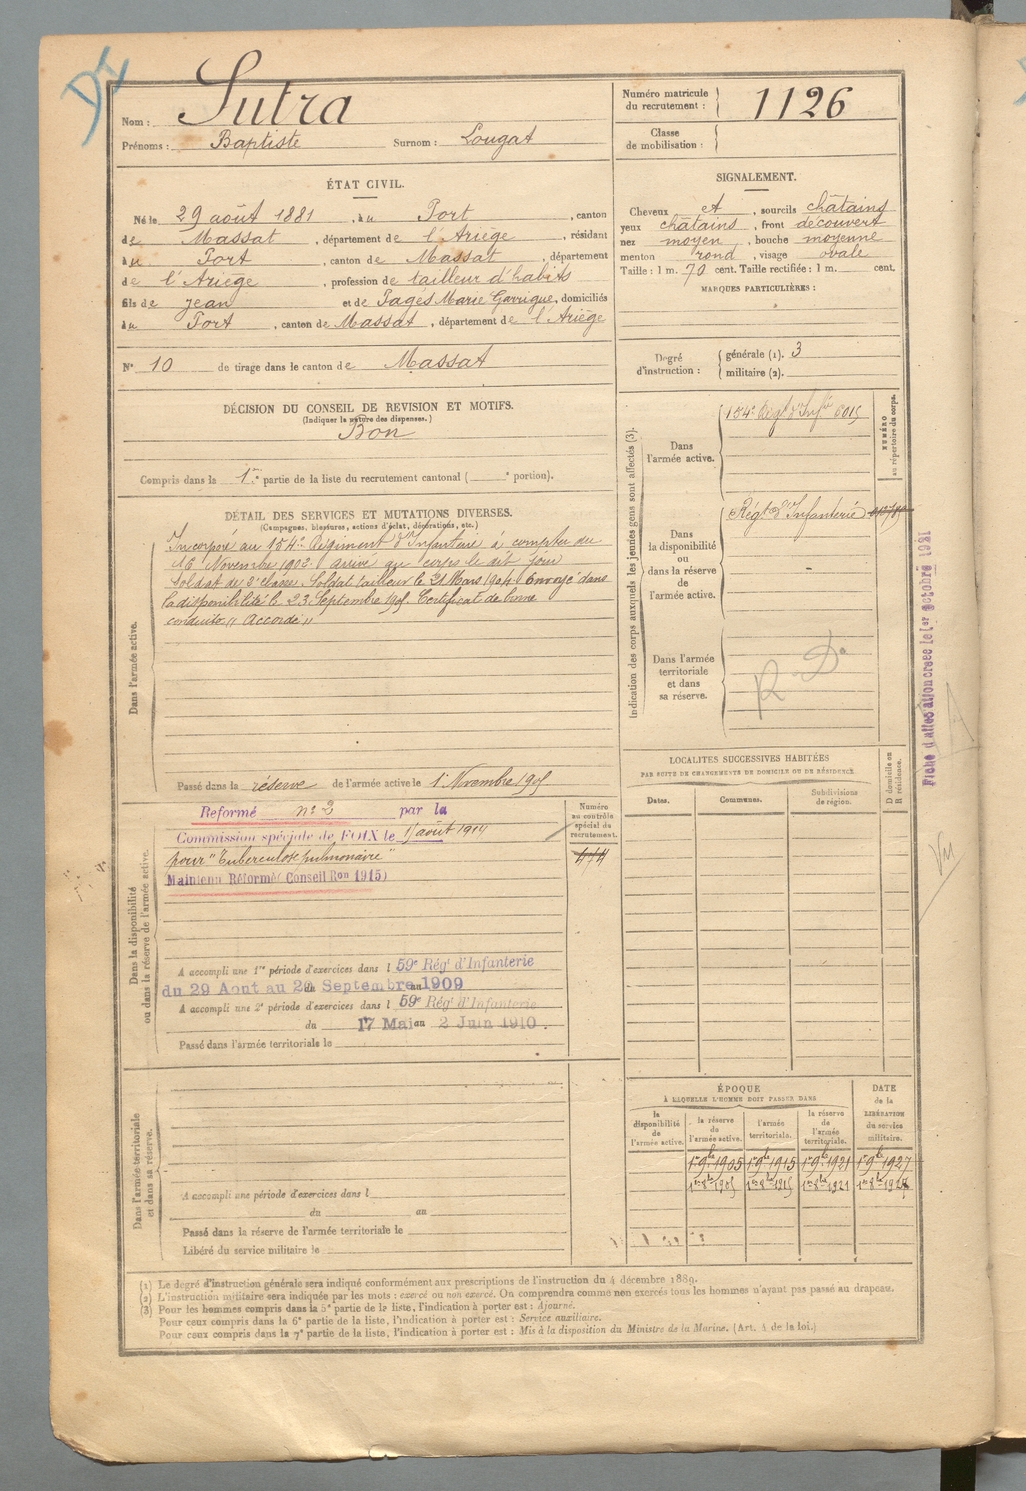 DI
Nom : Sutra
Prénoms : Baptiste Surnom : Lougat
Numéro matricule du recrutement : 1126
Classe de mobilisation :
ÉTAT CIVIL.
Né le 29 août 1881, à u Port, canton
de Massat, département de l'Ariège, résidant
à u Port, canton de Massat, département
de l'Ariège, profession de tailleur d'habits
fils de Jean et de Pagés Marie Garrigue, domiciliés
à u Port, canton de Massat, département de l'Ariège
N° 10 de tirage dans le canton de Massat
SIGNALEMENT.
Cheveux et, sourcils châtains
yeux châtains, front découvert
nez moyen, bouche moyenne
menton rond, visage ovale
Taille : 1 m. 70 cent. Taille rectifiée : 1 m. cent.
MARQUES PARTICULIÈRES :
Degré d'instruction : générale (1). 3
militaire (2).
DÉCISION DU CONSEIL DE REVISION ET MOTIFS.
(Indiquer la nature des dispenses.)
Bon
Compris dans la 1re partie de la liste du recrutement cantonal ( e portion).
DÉTAIL DES SERVICES ET MUTATIONS DIVERSES.
(Campagnes, blessures, actions d'éclat, décorations, etc.)
Dans l'armée active.
Incorporé au 154e Régiment d'Infanterie à compter du
16 Novembre 1902. arrivé au corps le dit jour
Soldat de 2e classe. Soldat tailleur le 21 Mars 1904. Envoyé dans
la disponibilité le 23 Septembre 1905. Certificat de bonne
conduite " Accordé "
Passé dans la réserve de l'armée active le 1er Novembre 1905
Dans la disponibilité ou dans la réserve de l'armée active.
Reformé n° 2 par la
Commission spéciale de FOIX le août 1914
pour "Tuberculose pulmonaire"
Maintenu Réformé (Conseil Ron 1915)
Numéro au contrôle spécial du recrutement.
444
A accompli une 1re période d'exercices dans l 59e Régt d'Infanterie
du 29 Aout au 20 Septembre 1909
A accompli une 2e période d'exercices dans l 59e Régt d'Infanterie
du 17 Mai au 2 Juin 1910.
Passé dans l'armée territoriale le
Dans l'armée territoriale et dans sa réserve.
A accompli une période d'exercices dans l
du au
Passé dans la réserve de l'armée territoriale le
Libéré du service militaire le
Indication des corps auxquels les jeunes gens sont affectés (3).
Dans l'armée active.
154e Régt d'Infie 6015
NUMÉRO au répertoire du corps.
Dans la disponibilité ou dans la réserve de l'armée active.
Régt d'Infanterie
Dans l'armée territoriale et dans sa réserve.
R. D.
LOCALITÉS SUCCESSIVES HABITÉES
PAR SUITE DE CHANGEMENTS DE DOMICILE OU DE RÉSIDENCE.
Dates. Communes. Subdivisions de région. D domicile ou R résidence.
ÉPOQUE
À LAQUELLE L'HOMME DOIT PASSER DANS
la disponibilité de l'armée active. la réserve de l'armée active. l'armée territoriale. la réserve de l'armée territoriale. DATE de la LIBÉRATION du service militaire.
1er 9bre 1905 1er 9bre 1915 1er 9bre 1921 1er 9bre 1927
1er 8bre 1905 1er 8bre 1915 1er 8bre 1921 1er 8bre 1927
Vu
(1) Le degré d'instruction générale sera indiqué conformément aux prescriptions de l'instruction du 4 décembre 1889.
(2) L'instruction militaire sera indiquée par les mots : exercé ou non exercé. On comprendra comme non exercés tous les hommes n'ayant pas passé au drapeau.
(3) Pour les hommes compris dans la 5e partie de la liste, l'indication à porter est : Ajourné.
Pour ceux compris dans la 6e partie de la liste, l'indication à porter est : Service auxiliaire.
Pour ceux compris dans la 7e partie de la liste, l'indication à porter est : Mis à la disposition du Ministre de la Marine. (Art. 4 de la loi.)